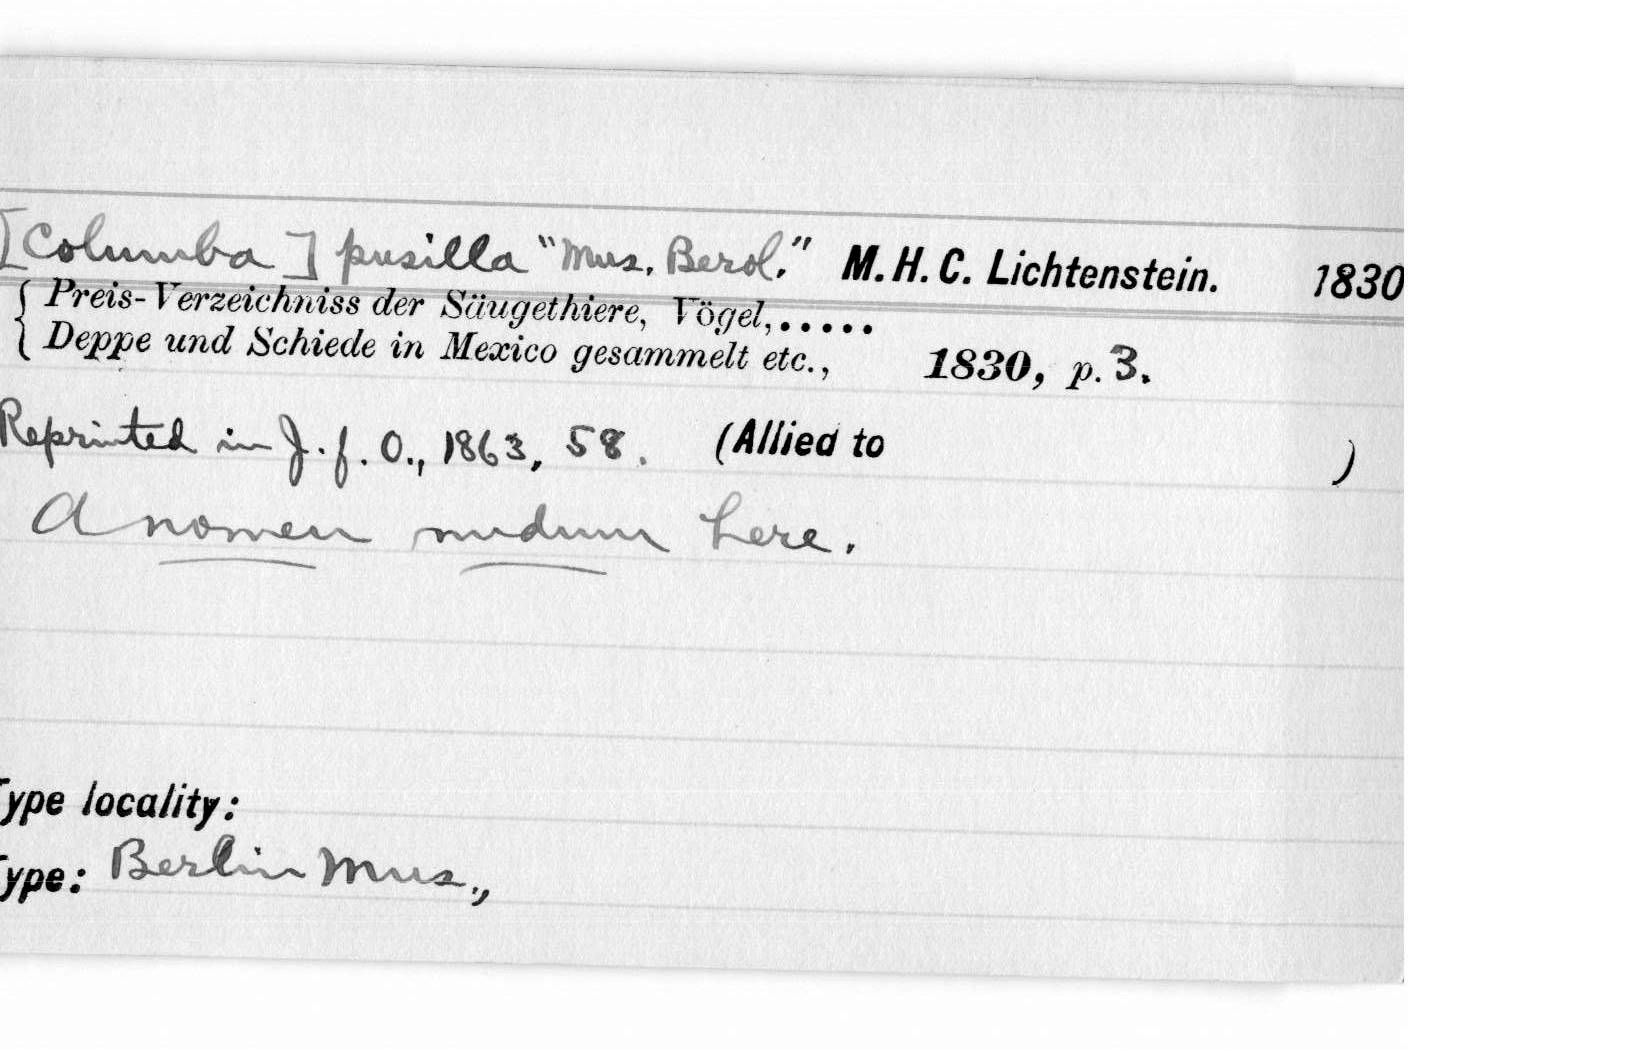 [Columba] pusilla "Mus. Berol." M. H. C. Lichtenstein. 1830
{ Preis-Verzeichniss der Säugethiere, Vögel, .....
{ Deppe und Schiede in Mexico gesammelt etc., 1830, p. 3.
Reprinted in J. f. O., 1863, 58. (Allied to )
A nomen nudum here.
Type locality:
Type: Berlin Mus.,